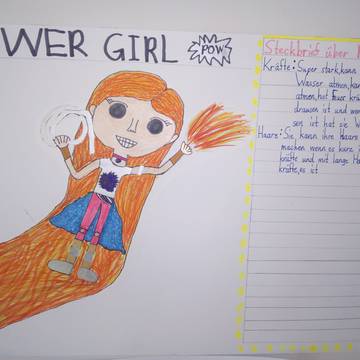 WER GIRL
POW
Steckbrief über
Kräfte: Super stark, kann
Wasser atmen, kan
atmen, hat feuer kräf
drausen ist und wen
sen ist hat sie W
Haare: Sie, kann ihre haare
machen wenn es kurz i
kräfte und mit lange Ha
kräfte, es ist